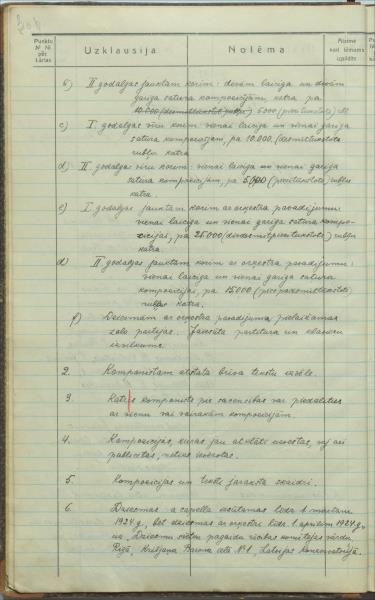 Punktu № № pēc kārtas
Uzklausīja
Nolēma
Atzīme kad lēmums izpildīts
b) II godalgas jauktam korim: divām laicīga un divām
garīga satura kompozīcijām, katra pa
5000 (pieci tūkstoši) rbļ.
c) I godalgas vīru korim: vienai laicīga un vienai garīga
satura kompozīcijām, pa 10.000 (desmittūkstots
rubļu katra
d) II godalgas vīru korim: vienai laicīga un vienai garīga
satura kompozīcijām, pa 5000 (piecitūkstots) rubļu
katra
e) I godalgas jauktam korim ar orķestra pavadījumu:
vienai laicīga un vienai garīga satura kompo-
zīcijai, pa 25000 (divdesmitpiecitūkstots) rubļu
katra.
d) II godalgas jauktam korim ar orķestra pavadījumu:
vienai laicīga un vienai garīga satura
kompozīcijai, pa 15000 (piecpadsmittūkstots)
rubļu katra.
f) Dziesmām ar orķestra pavadījumu pielaižamas
solo partijas. Jāraksta partitura un klavieru
izvilkums.
2. Komponistam atstāta brīva tekstu izvēle.
3. Katrs komponists pie sacensības var piedalīties
ar vienu vai vairākām kompozīcijām.
4. Kompozīcijas, kuras jau atklāti izvestas, vaj arī
publicētas, netiek ievērotas.
5. Kompozīcijas un teksti jāraksta skaidri.
6. Dziesmas a capella iesūtāmas līdz 1 martam
1924 g., bet dziesmas ar orķestri līdz 1 aprilim 1924 g.,
uz „Dziesmu svētku pagaidu rīcības komitejas vārdu
Rīgā, Krišjāņa Barona ielā № 1, Latvijas Konservatorijā.